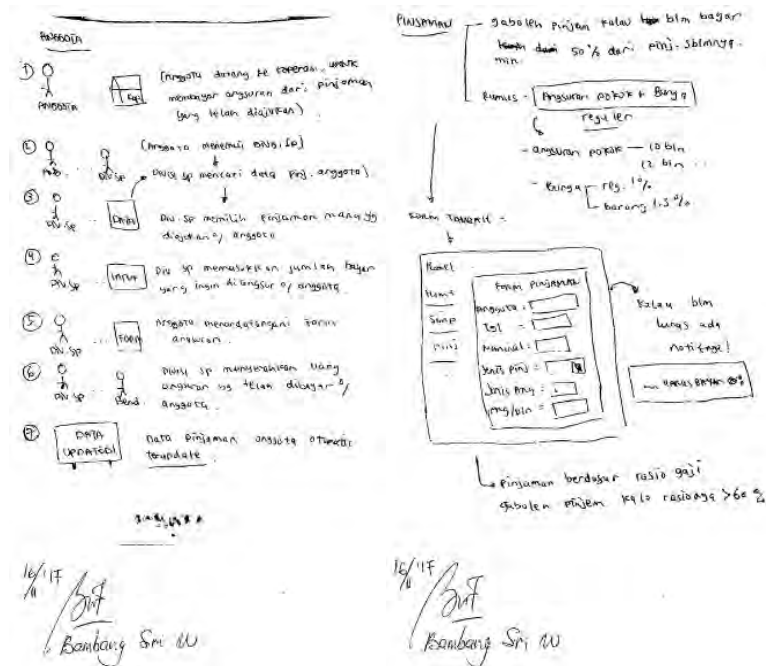 ANGGOTA
①
ANGGOTA
Kop.
(Anggota datang ke koperasi untuk
membayar angsuran dari pinjaman
yang telah diajukan)
②
Div. SP
(Anggota menemui Divisi SP)
Divisi SP mencari data pinj. anggota)
③
Div. SP
DATA
Div. SP memilih pinjaman mana yg
diajukan o/ anggota
④
Div. SP
INPUT
Div SP memasukkan jumlah bayar
yang ingin diangsur o/ anggota.
⑤
Div. SP
FORM
Anggota menandatangani form
angsuran.
⑥
Div. SP
Bend.
Divisi SP menyerahkan uang
angsuran yg telah dibayar o/
anggota.
⑦
DATA
UPDATED!
Data pinjaman anggota otomatis
terupdate.
16/11 '17
Bambang Sri W
PINJAMAN
gaboleh pinjam kalau blm bayar
50% dari pinj. sblmnya.
min.
Rumus - Angsuran pokok + Bunga
reguler
- angsuran pokok — 10 bln
12 bln ..
- Bunga
reg. 1%
barang 1.5%
FORM TAMBAH -
Simp
Pinj
FORM PINJAMAN
Anggota =
Tgl =
Nominal =
Jenis Pinj =
Jenis Ang =
Ang/bln =
Kalau blm
lunas ada
notifnya!
HARUS BAYAR
Pinjaman berdasar rasio gaji
gaboleh pinjem kalo rasionya >60%
16/11 '17
Bambang Sri W